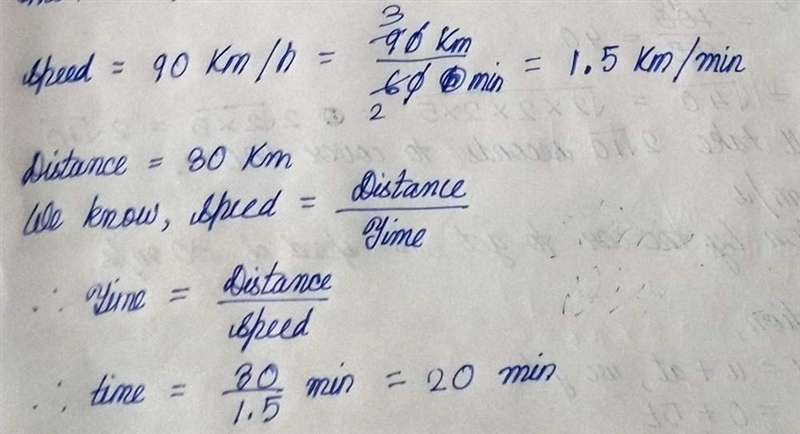 Speed = 90 Km/h = 3 90 Km / 2 60 min = 1.5 Km/min
Distance = 30 Km
We know, Speed = Distance / Time
∴ Time = Distance / Speed
∴ time = 30 / 1.5 min = 20 min